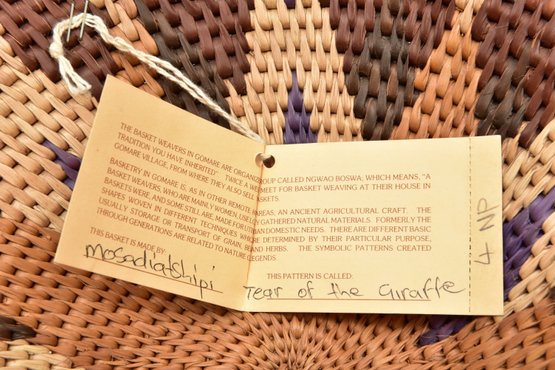 THE BASKET WEAVERS IN GOMARE ARE ORGANI
TRADITION YOU HAVE INHERITED". TWICE A W
GOMARE VILLAGE, FROM WHERE THEY ALSO SELL
BASKETRY IN GOMARE IS, AS IN OTHER REMOTE
BASKET WEAVERS, WHO ARE MAINLY WOMEN,
BASKETS WERE, AND SOME STILL ARE, MADE FOR
SHAPES WOVEN IN DIFFERENT TECHNIQUES
USUALLY STORAGE OR TRANSPORT OF GRAIN,
THROUGH GENERATIONS ARE RELATED TO NATURE
THIS BASKET IS MADE BY:
Mosadiatshipi
OUP CALLED NGWAO BOSWA; WHICH MEANS, "A
MEET FOR BASKET WEAVING AT THEIR HOUSE IN
SKETS
AREAS, AN ANCIENT AGRICULTURAL CRAFT. THE
GATHERED NATURAL MATERIALS. FORMERLY THE
AND DOMESTIC NEEDS. THERE ARE DIFFERENT BASIC
ERE DETERMINED BY THEIR PARTICULAR PURPOSE,
AND HERBS. THE SYMBOLIC PATTERNS CREATED
LEGENDS
THIS PATTERN IS CALLED:
Tear of the Giraffe
4 NP